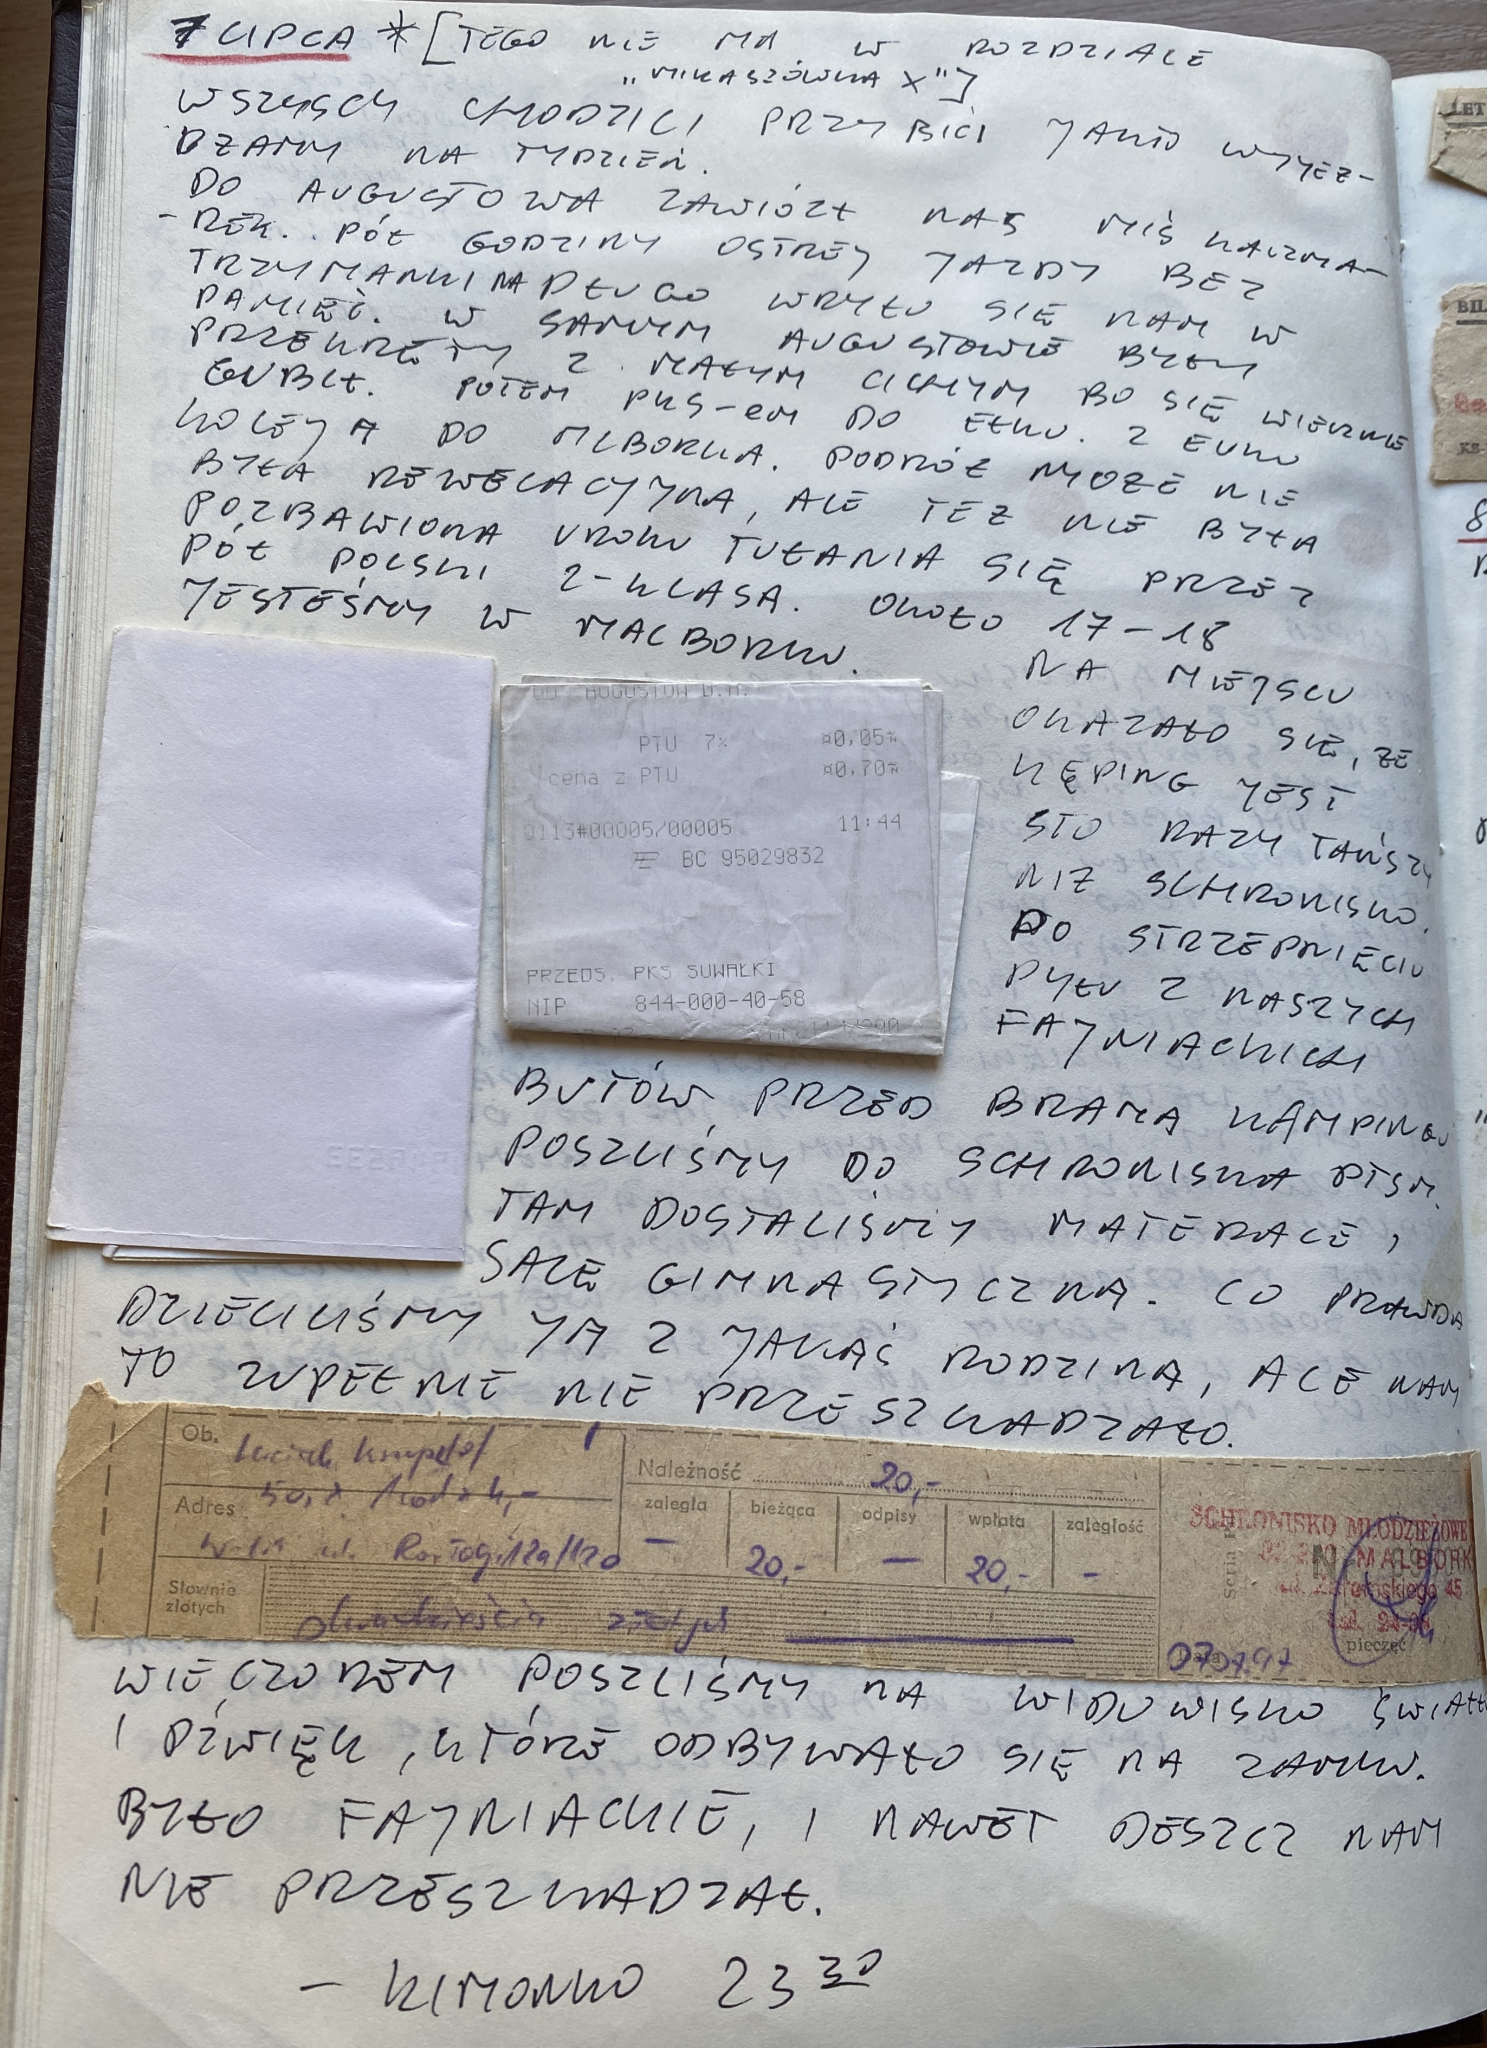 7 LIPCA * [TEGO NIE MA W ROZDZIALE
„MIKASZÓWKA X"]
WSZYSCY CHODZILI PRZYBICI JAKO WYJEŻ-
DŻAMY NA TYDZIEŃ.
DO AUGUSTOWA ZAWIÓZŁ NAS MIŚ KACZMA-
-REK. PÓŁ GODZINY OSTREJ JAZDY BEZ
TRZYMANKI NA DŁUGO WRYŁO SIĘ NAM W
PAMIĘĆ. W SAMYM AUGUSTOWIE BYŁY
PRZEKRĘTY Z MAŁYM CICHYM BO SIĘ WIECZNIE
GUBIŁ. POTEM PKS-em DO EŁKU. Z EŁKU
KOLEJĄ DO MLBORKA. PODRÓŻ MOŻE NIE
BYŁA REWELACYJNA, ALE TEŻ NIE BYŁA
POZBAWIONA UROKU TUŁANIA SIĘ PRZEZ
PÓŁ POLSKI 2-KLASĄ. OKOŁO 17-18
JESTEŚMY W MALBORKU.
NA MIEJSCU
OKAZAŁO SIĘ, ŻE
KĘPING JEST
STO RAZY TAŃSZY
NIŻ SCHRONISKO.
PO STRZEPNIĘCIU
PYŁU Z NASZYCH
FAJNIACKICH
BUTÓW PRZED BRAMĄ KAMPINGU
POSZLIŚMY DO SCHRONISKA PTSM.
TAM DOSTALIŚMY MATERACE,
SALĘ GIMNASTYCZNĄ. CO PRAWDA
DZIELILIŚMY JĄ Z JAKĄŚ RODZINĄ, ALE NAM
TO ZUPEŁNIE NIE PRZESZKADZAŁO.
AUGUSTÓW D.A.
PTU 7% ¤0,05¤
cena z PTU ¤0,70¤
0113#00005/00005 11:44
BC 95029832
PRZEDS. PKS SUWAŁKI
NIP 844-000-40-58
Ob.
Należność 20,-
Adres
zaległa bieżąca odpisy wpłata zaległość
— 20,- — 20,- -
Słownie
złotych
dwadzieścia złotych
SCHRONISKO MŁODZIEŻOWE
MALBORK
ul. Żeromskiego 45
pieczęć
07.07.97
WIECZOREM POSZLIŚMY NA WIDOWISKO ŚWIATŁO
I DŹWIĘK, KTÓRE ODBYWAŁO SIĘ NA ZAMKU.
BYŁO FAJNIACKIE, I NAWET DESZCZ NAM
NIE PRZESZKADZAŁ.
- KIMONKO 23 30
LET
BIL